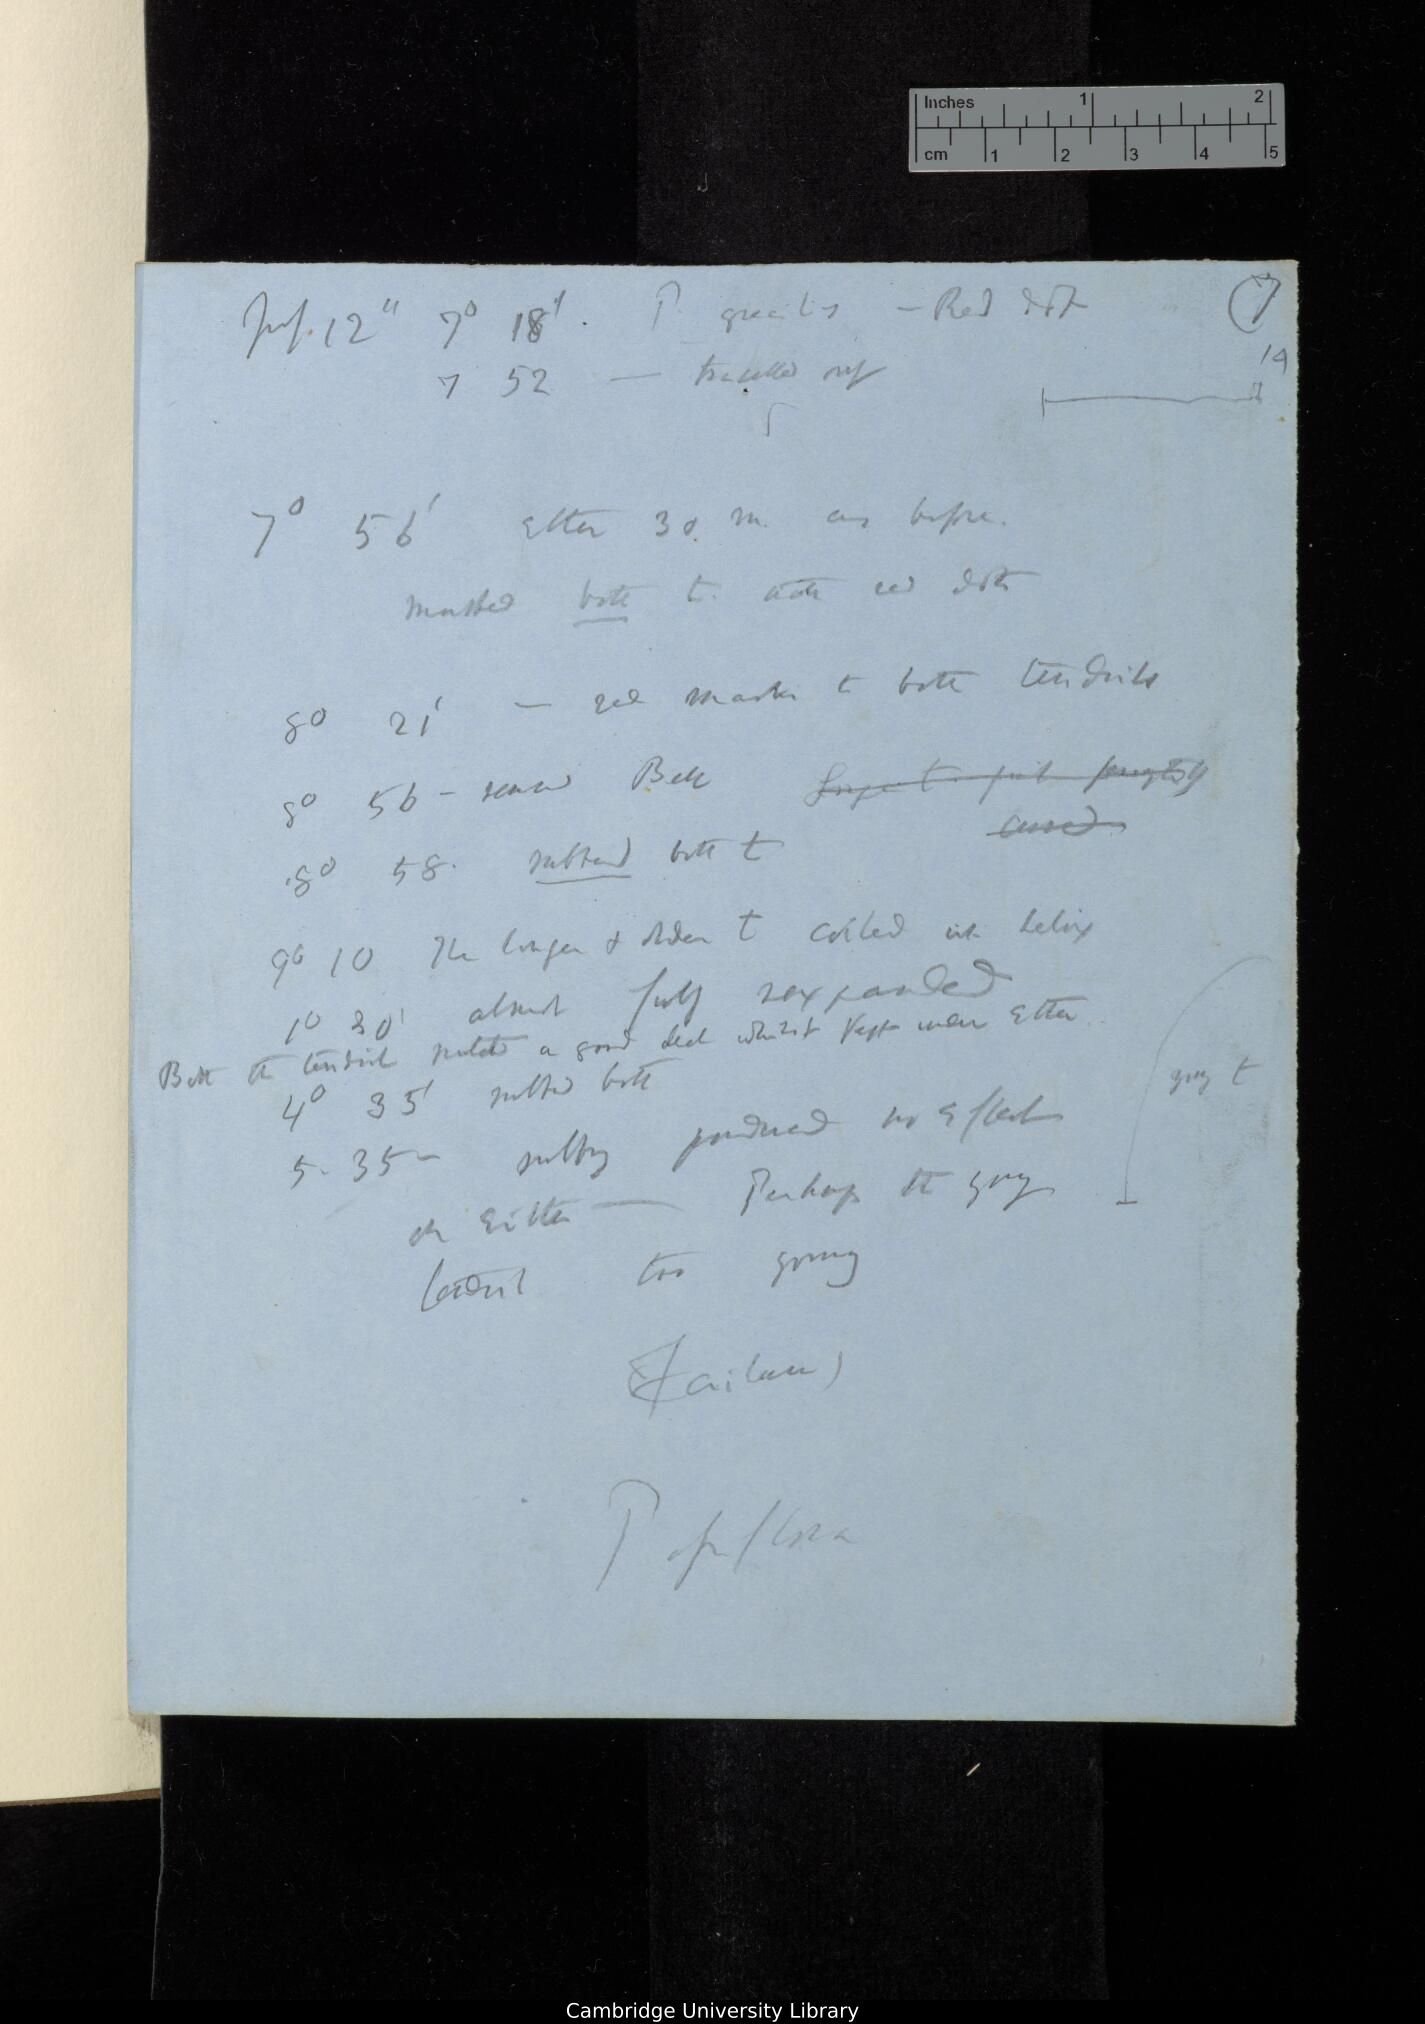 Inches 1 2
cm 1 2 3 4 5
7
July 12" 7° 18' P. gracilis — Red dot
19
7 52 —
7° 56' Ether 30 m. as before.
Marked both t. with red dots
8° 21' — red marks to both tendrils
8° 56 — removed Bell
curved
8° 58. rubbed both t
9° 10 The longer & older t coiled in helix
1° 30' almost fully re expanded
Both the tendrils moved a good deal whilst kept under Ether
young t
4° 35' rubbed both
5. 35 — rubbing produced no effect
on either — Perhaps the young
tendril too young
(Failure)
P
Cambridge University Library